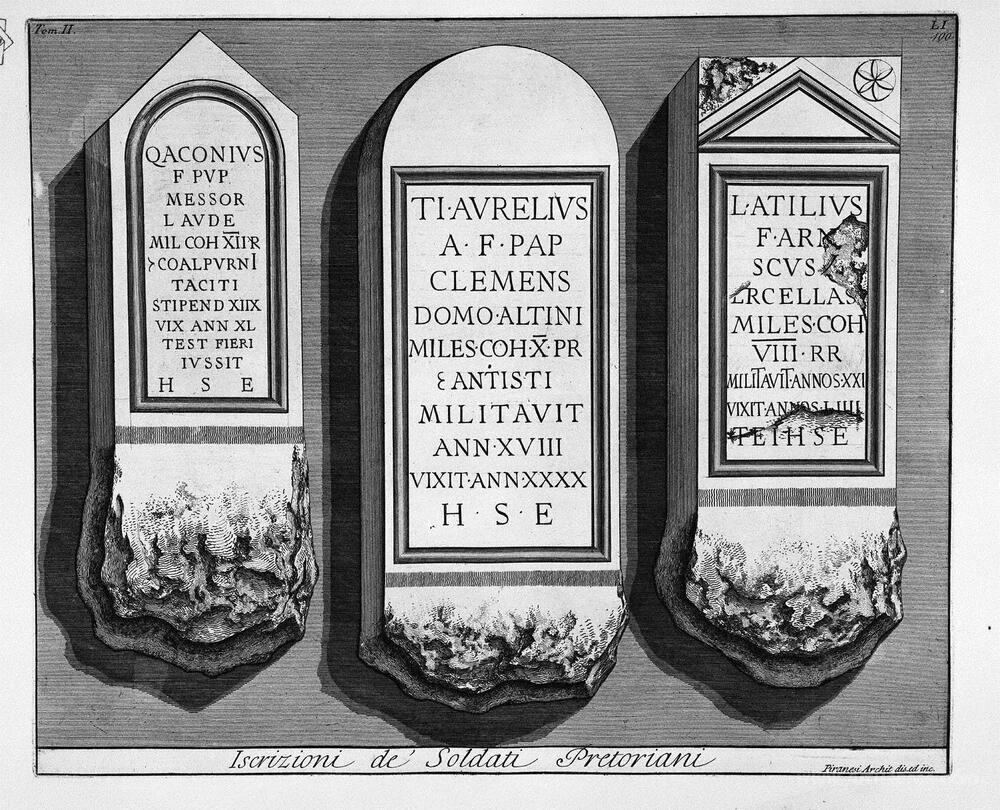 Tom. II.
LI
190
QACONIVS
F PVP
MESSOR
LAVDE
MIL COH X̅I̅I̅ R
COALPVRNI
TACITI
STIPEND XIIX
VIX ANN XL
TEST FIERI
IVSSIT
H S E
TI·AVRELIVS
A·F·PAP
CLEMENS
DOMO·ALTINI
MILES·COH·X̅·PR
ANTISTI
MILITAVIT
ANN·XVIII
VIXIT·ANN·XXXX
H·S·E
L·ATILIVS
F·ARN
SCVS
ERCELLAS
MILES·COH
V̅I̅I̅I̅·RR
MILITAVIT·ANNOS·XXI
VIXIT·ANNOS·LIIII
TEIHSE
Iscrizioni de' Soldati Pretoriani
Piranesi Archit. dis. ed inc.